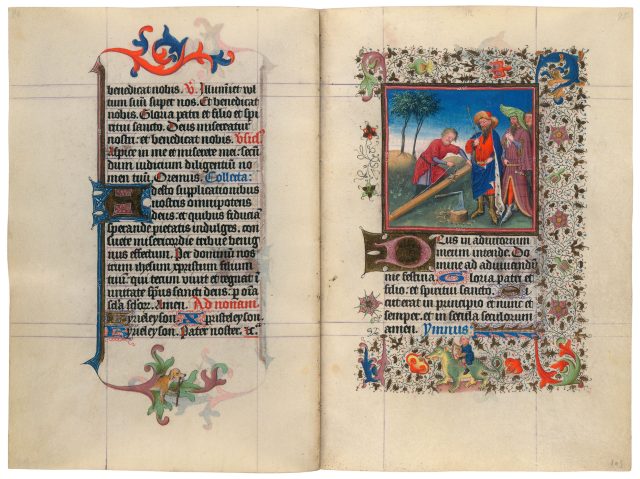 benedicat nobis. V. Illuminet vul
tum suū super nos. Et benedicat
nobis. Gloria patri et filio et spi
ritui sancto. Deus misereatur
nostri: et benedicat nobis.
Aspice in me et miserere mei: secū
dum iudicium diligentiū no
men tuū. Oremus. Collecta:
Adesto supplicationibus
nostris omnipotens
deus: et quibus fiduciā
sperande pietatis indulges, con
suete misericordie tribue benig
nus effectum. Per dominū nos
trum ihesum xpristum filium
tuū: qui tecum vivit et regnat ī
unitate spūs sancti deus: p oīa
scła scłor. Amen. Ad nonam.
Kyrieleyson. Xpristeleyson.
Kyrieleyson. Pater noster. &c.
Deus in adiutorium
meum intende. Do
mine ad adiuvandū
me festina. Gloria patri et
filio: et spiritui sancto. S
icut erat in principio et nunc et
semper: et in secula seculorum
amen. Ymnus